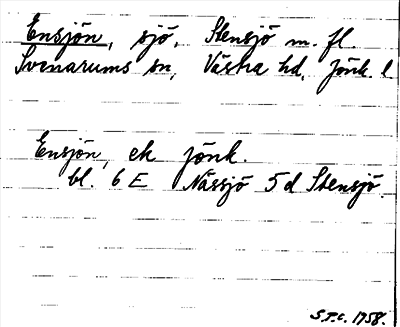 Ensjön, sjö, Stensjö m. fl.
Svenarums sn, Västra hd, Jönk. l
Ensjön, ek jönk.
bl. 6 E Nässjö 5 d Stensjö.
S.T.C. 1758.